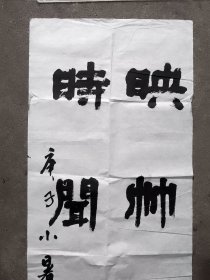 映竹
時聞
庚子小暑